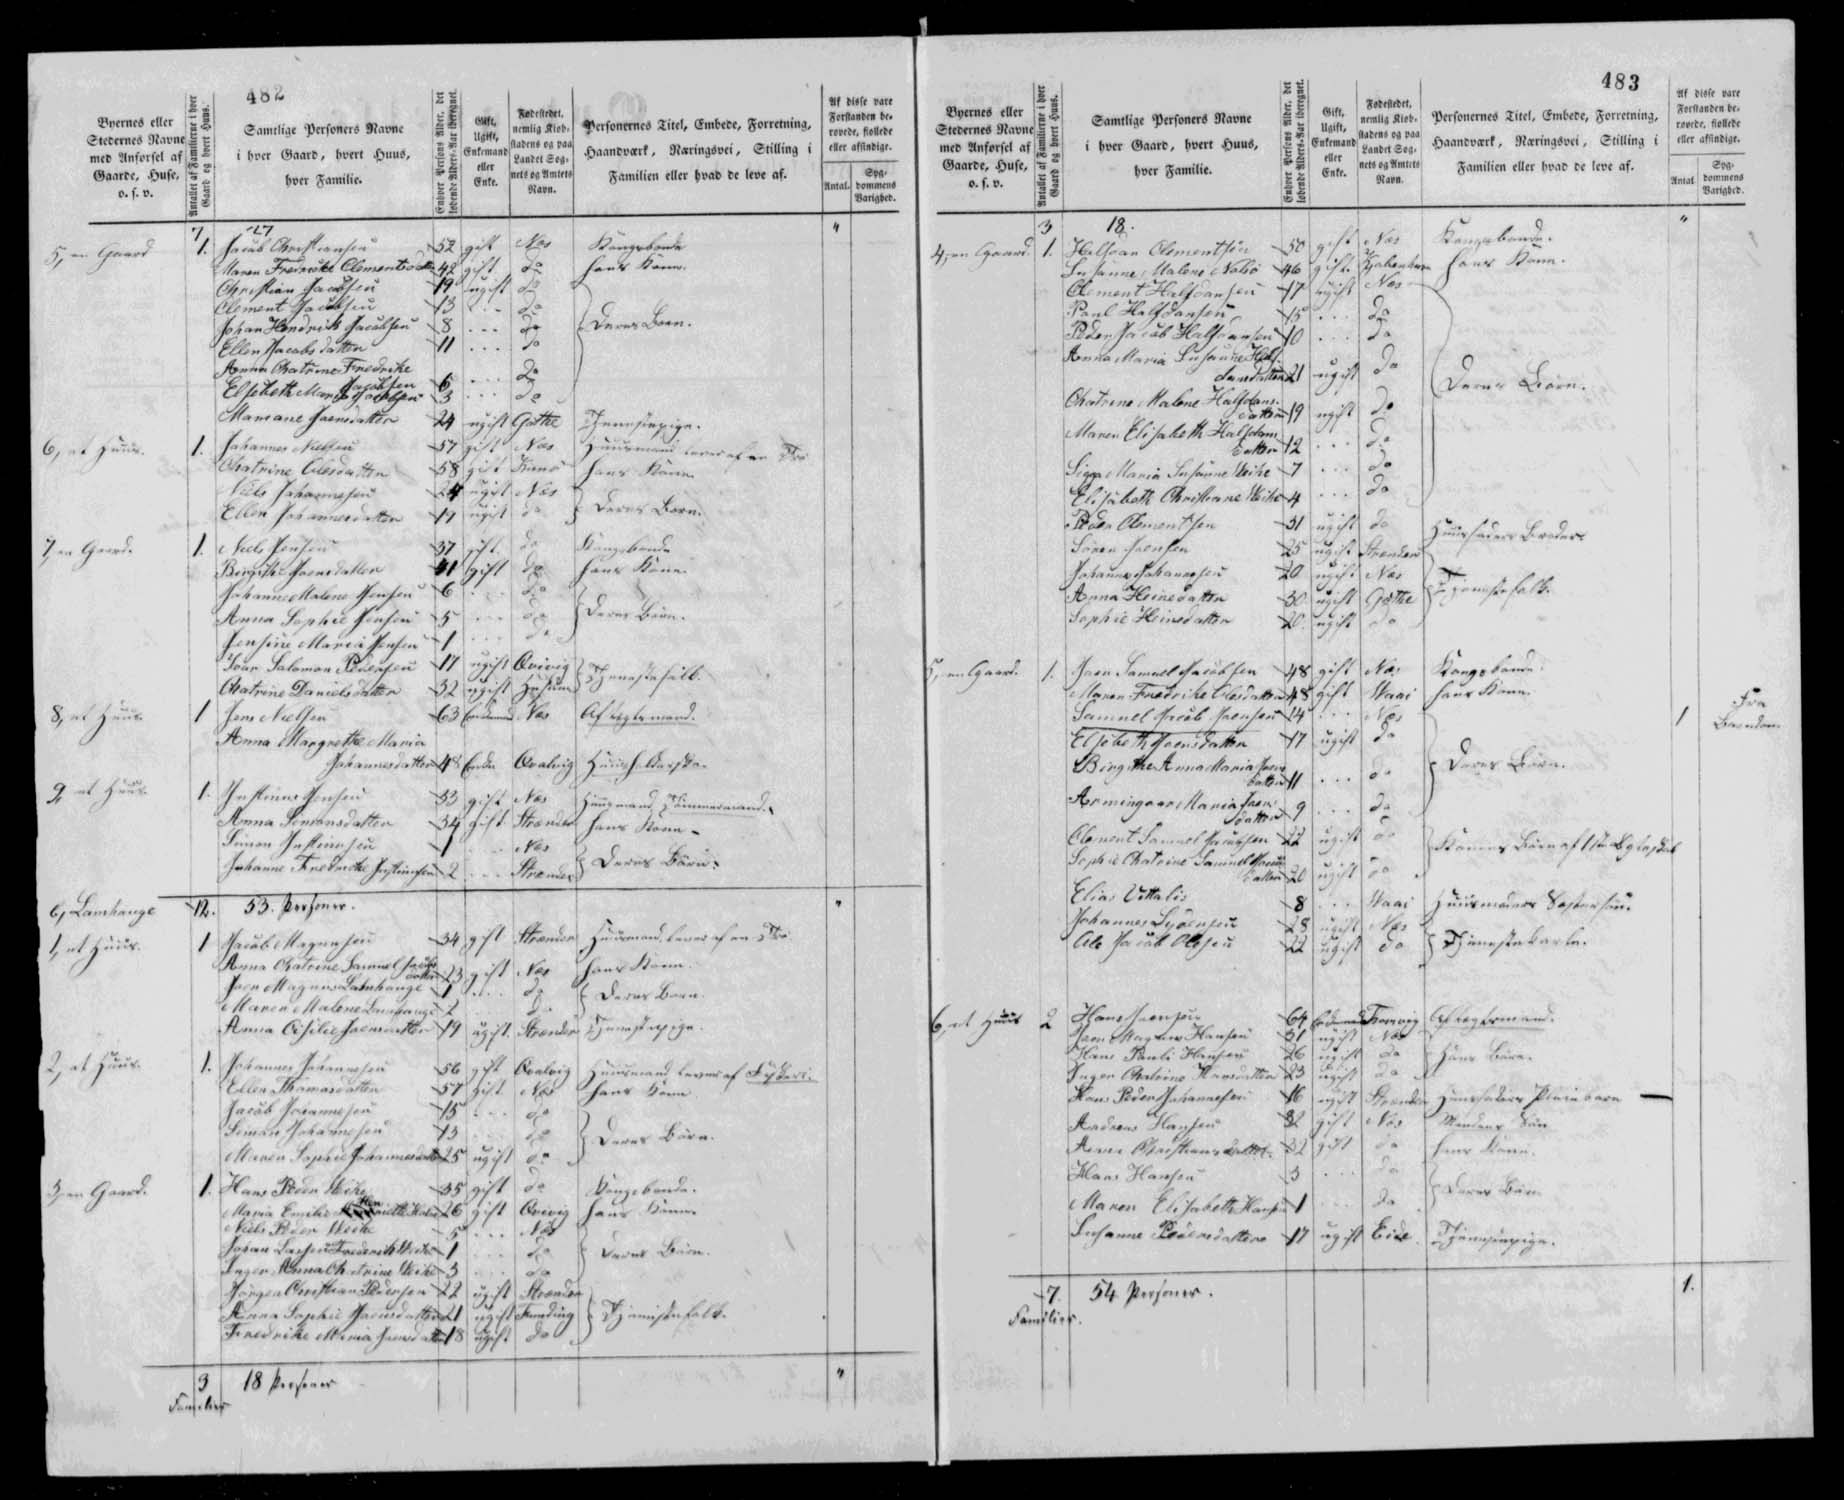 482
Byernes eller Stedernes Navne med Anførsel af Gaarde, Huse, o. s. v.
Antallet af Familierne i hver Gaard og hvert Huus.
Samtlige Personers Navne i hver Gaard, hvert Huus, hver Familie.
Enhver Persons Alder, det løbende Alders-Aar iberegnet.
Gift, Ugift, Enkemand eller Enke.
Fødestedet, nemlig Kiøbstadens og paa Landet Sognets og Amtets Navn.
Personernes Titel, Embede, Forretning, Haandværk, Næringsvei, Stilling i Familien eller hvad de leve af.
Af disse vare Forstanden berøvede, fiollede eller afsindige.
Antal.
Sygdommens Varighed.
7 27 "
5, en Gaard 1. Jacob Christiansen 52 gift Næs Kongsbonde
Maren Fredrikke Clementsdatter 42 gift do hans Kone.
Christian Jacobsen 19 ugift do
Clement Jacobsen 13 ... do
Johan Hendrik Jacobsen 8 ... do Deres Børn.
Ellen Jacobsdatter 11 ... do
Anna Chatrine Fredrike
Jacobsen 6 ... do
Elsebeth Maria Jacobsen 3 ... do
Mariane Joensdatter 24 ugift Gøthe Tjenestepige.
6, et Huus. 1. Johannes Nielsen 57 gift Næs Huusmand lever af en Trø
Chatrine Olesdatter 58 gift hans Kone.
Niels Johannesen 24 ugift Næs
Ellen Johannesdatter 19 ugift do Deres Børn.
7, en Gaard. 1. Niels Jensen 37 gift do Kongsbonde
Birgithe Joensdatter 41 gift do hans Kone.
Johanne Malene Jensen 6 ... do
Anna Sophie Jensen 5 ... do Deres Børn.
Jensine Maria Jensen 1 ... do
Joen Salomon Pedersen 17 ugift Qvivig
Chatrine Danielsdatter 32 ugift Tjenestefolk.
8, et Huus. 1 Jens Nielsen 63 Enkemand Næs Aftægtsmand.
Anna Margrethe Maria
Johannesdatter 48 Enke Qvalvig Huusholderske.
9, et Huus. 1. Justinus Jensen 33 gift Næs Huusmand, Tømmermand.
Anna Simonsdatter 34 gift Strænder hans Kone
Simon Justinusen 1 ... Næs
Johanne Fredrikke Justinusen 2 ... Strænder Deres Børn.
12. 53. Personer. "
6, Lamhauge
1, et Huus. 1 Jacob Magnusen 34 gift Strænder Huusmand, lever af en Trø
Anna Chatrine Samuel Jacobsdatter 23 gift Næs hans Kone.
Joen Magnus Lamhauge 1 ... do Deres Børn.
Maren Malene Lamhauge 2 ... do
Anna Cisilie Joensdatter 19 ugift Strænder Tjenestepige.
2, et Huus. 1. Johannes Johannesen 56 gift Qvalvig Huusmand lever af Fiskeri.
Ellen Thomasdatter 57 gift Næs hans Kone
Jacob Johannesen 15 ... do
Simon Johannesen 13 ... do Deres Børn.
Maren Sophie Johannesdatter 25 ugift do
3, en Gaard. 1. Hans Peder Weihe 35 gift do Kongsbonde.
Maria Emilie 26 gift Qvivig hans Kone.
Niels Peder Weihe 5 ... Næs
Johan Frederik Weihe 1 ... do Deres Børn.
Inger Anna Chatrine Weihe 3 ... do
Jørgen Christian Pedersen 22 ugift Strænder
Anna Sophie Joensdatter 21 ugift Funding Tjenestefolk.
Fredrike Maria Joensdatter 18 ugift do
3 18 Personer "
Familier
483
Byernes eller Stedernes Navne med Anførsel af Gaarde, Huse, o. s. v.
Antallet af Familierne i hver Gaard og hvert Huus.
Samtlige Personers Navne i hver Gaard, hvert Huus, hver Familie.
Enhver Persons Alder, det løbende Alders-Aar iberegnet.
Gift, Ugift, Enkemand eller Enke.
Fødestedet, nemlig Kiøbstadens og paa Landet Sognets og Amtets Navn.
Personernes Titel, Embede, Forretning, Haandværk, Næringsvei, Stilling i Familien eller hvad de leve af.
Af disse vare Forstanden berøvede, fiollede eller afsindige.
Antal
Sygdommens Varighed.
3 18. "
4, en Gaard. 1. Halfdan Clementsen 50 gift Næs Kongsbonde.
Susanne Malene Nolsø 46 gift Kjøbenhavn hans Kone.
Clement Halfdansen 17 ugift Næs
Paul Halfdansen 15 ... do
Peder Jacob Halfdansen 10 ... do
Anna Maria Susanne Half-
dansdatter 21 ugift do Deres Børn.
Chatrine Malene Halfdans-
datter 19 ugift do
Maren Elisabeth Halfdans
datter 12 ... do
Sigga Maria Susanne Weihe 7 ... do
Elisabeth Christiane Weihe 4 ... do
Peder Clementsen 31 ugift do Huusfaders Broder
Søren Joensen 25 ugift Strænder
Johannes Johannesen 20 ugift Næs
Anna Heinesdatter 30 ugift Gøthe Tjenestefolk.
Sophie Heinesdatter 20. ugift do
5, en Gaard. 1. Joen Samuel Jacobsen 48 gift Næs Kongsbonde.
Maren Fredrike Olesdatter 48 gift Waai hans Kone.
Samuel Jacob Joensen 14 ... Næs 1 Fra Barndom.
Elsebeth Joensdatter 17 ugift do
Birgithe Anna Maria Joens
datter 11 ... do Deres Børn.
Armingaar Maria Joens
datter 9 ... do
Clement Samuel Jacobsen 22 ugift do Konens Børn af 1ste Ægteskab
Sophie Chatrine Samuel Jacobs
datter 20 ugift do
Elias Vittalis 8 ... Waai Huusmoders Søstersøn.
Johannes 28 ugift Næs
Ole Jacob Olesen 22 ugift do Tjenestekarle.
6, et Huus 2 Hans Joensen 64 Enkemand Aftægtsmand.
Joen Magnus Hansen 31 ugift Næs
Hans Pauli Hansen 26 ugift do Hans Børn.
Inger Chatrine Hansdatter 23 ugift do
Hans Peder Johannesen 16 ugift Strænder Huusfaders Pleiebarn
Andreas Hansen 32 gift Næs Mandens Søn
Anna Christiansdatter 32 gift do hans Kone.
Hans Hansen 3 ... do
Maren Elisabeth Hansen 1 ... do Deres Børn
Susanne Pedersdatter 17 ugift Eide Tjenestepige.
7. 54 Personer. 1.
Familier.